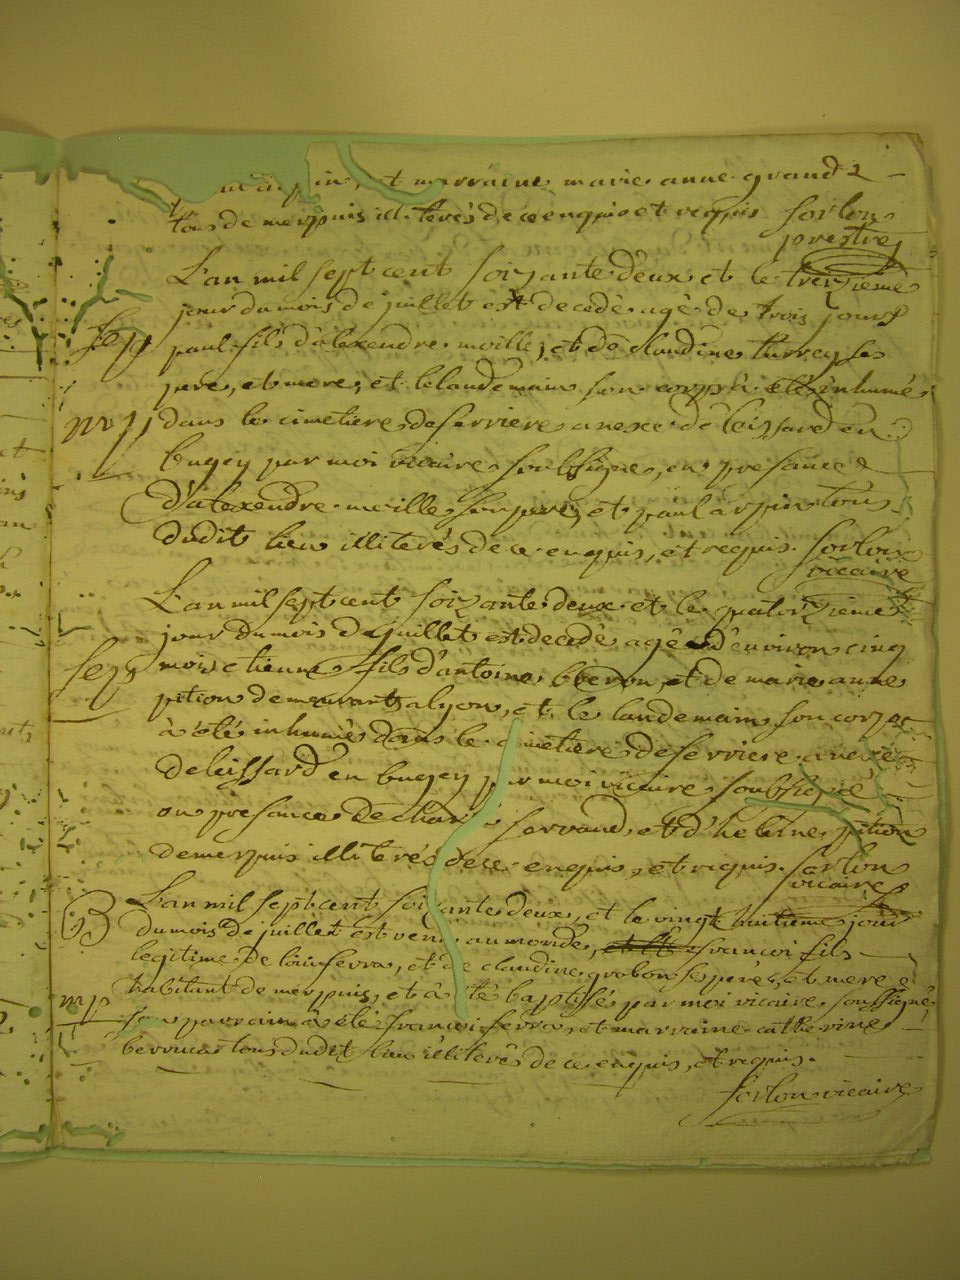 et marraine marie anne grand
tous de merpuis illiterés de ce enquis et requis sorlon
prestre
L'an mil sept cent soizante deux et le treizieme
jour du mois de juillet est decedé agé de trois jours
Sep paul fils d'alexendre moille, et de claudine turrey ses
pere, et mere, et le landemain son corps à été inhumé
mp dans le cimetiere de serriere anexe de leissard en
bugey par moi vicaire soubsigné, en presance
d'alexendre moille son pere, et paul arpin tous
dudit lieu illiterés de ce enquis, et requis. sorlon
vicaire
L'an mil sept cent soizante deux et le quatorzieme
jour du mois de juillet est decedé agé d'environ cinq
Sep mois etienne fils d'antoine et de marie anne
pition demeurant a lyon, et le landemain son corps
à été inhumé dans le cimetiere de serriere anexe
de leissard en bugey par moi vicaire soubsigné
en presance de servand, et d'helene pition
de merpuis illiterés de ce enquis, et requis. sorlon
vicaire
B L'an mil sept cent soizante deux, et le vingt huitieme jour
du mois de juillet est venu au monde, francoi fils
legitime de loui ferra, et de claudine grobon ses pere, et mere
habitant de merpuis, et à été baptisé par moi vicaire soussigné,
mp son parrain à été francoi ferra, et marraine catherine
tous dudit lieu illiterés de ce enquis, et requis.
sorlon vicaire